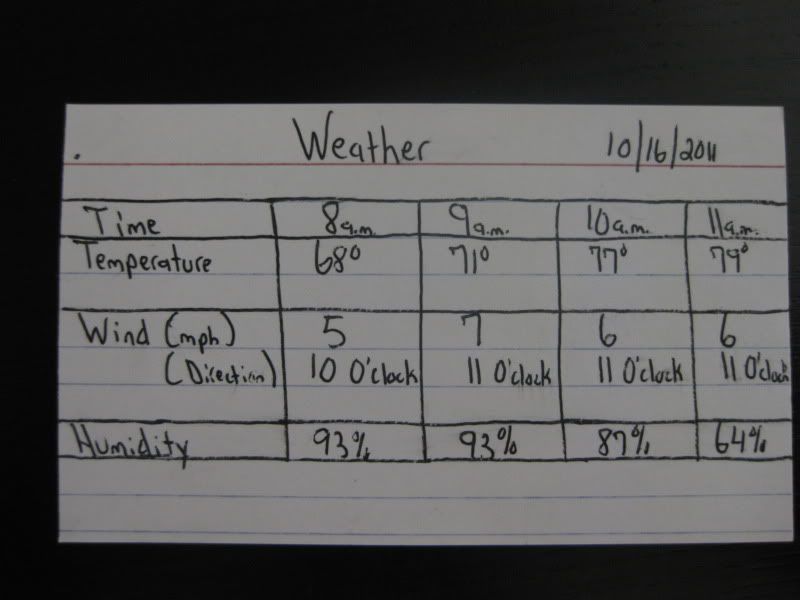 Weather 10/16/2011
Time 8a.m. 9a.m. 10a.m. 11a.m.
Temperature 68° 71° 77° 79°
Wind (mph) 5 7 6 6
(Direction) 10 O'clock 11 O'clock 11 O'clock 11 O'clock
Humidity 93% 93% 87% 64%